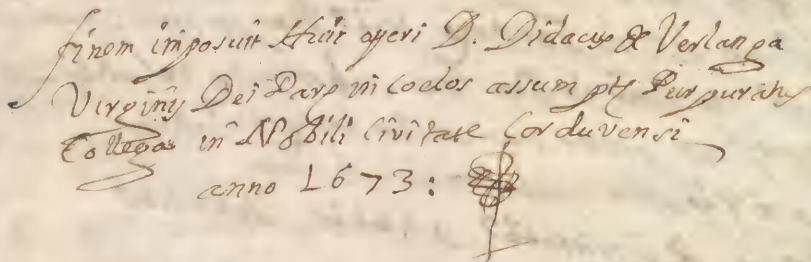 finem imposuit Huic operi D. Didacus de Verlanga
Virginis Dei Parę in coelos assumptę Purpuratus
Collega in Nobili Civitate Corduvensi
anno 1673: